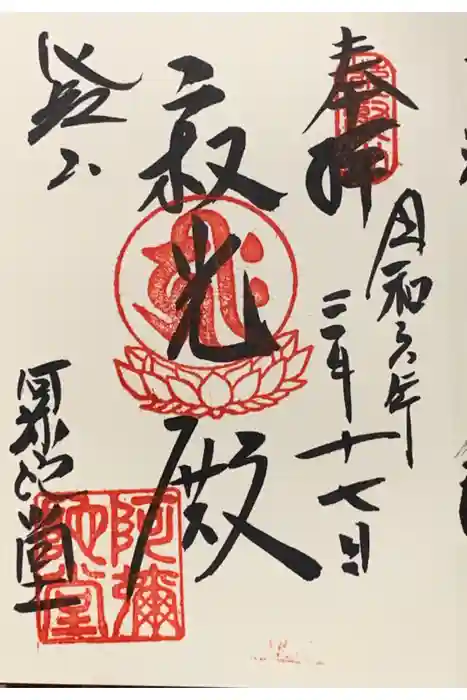 奉拝
令和六年
三月十七日
寂光殿
叡山
阿弥陀堂
阿彌
陀堂